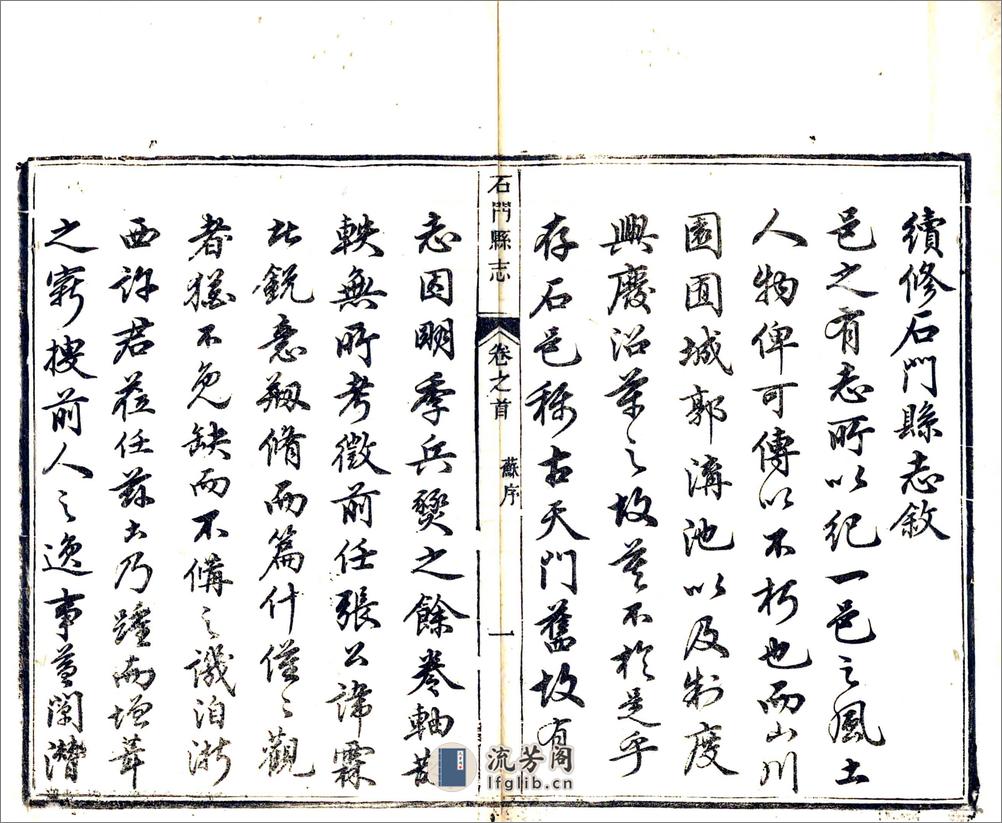 續修石門縣志敘
邑之有志所以紀一邑之風土
人物俾可傳以不朽也而山川
園囿城郭溝池以及制度
興廢沿革之故莫不於是乎
存石邑稱古天門舊故有
石門縣志
卷之首
蘇序
一
志因明季兵燹之餘卷軸散
軼無所考徵前任張公諱霖
銳意剏脩而篇什僅之觀
者猶不免缺而不備之譏洎浙
西許君蒞任茲土乃踵而增葺
之竅搜前人之逸事益闡潛
流芳阁
lfglib.cn